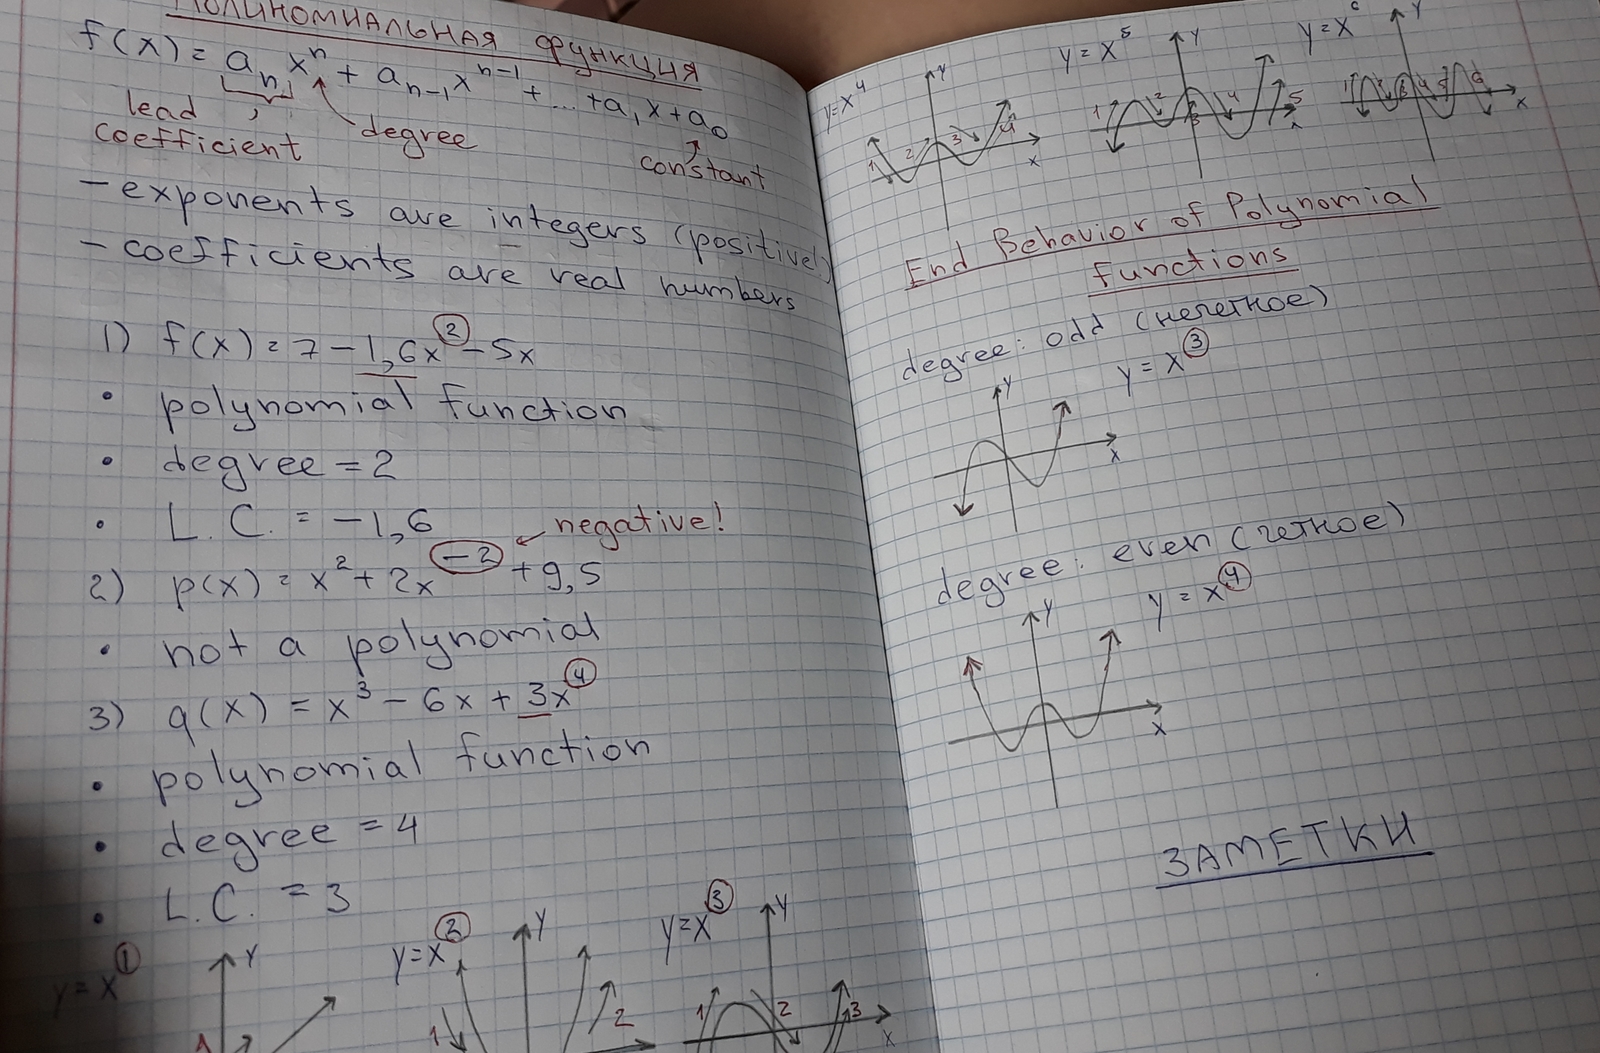 Полиномиальная функция
f(x) = aₙxⁿ + aₙ₋₁xⁿ⁻¹ + ... + a₁x + a₀
lead coefficient
degree
constant
- exponents are integers (positive!)
- coefficients are real numbers
1) f(x) = 7 - 1,6x² - 5x
• polynomial function
• degree = 2
• L.C. = -1,6
negative!
2) p(x) = x² + 2x⁻² + 9,5
• not a polynomial
3) q(x) = x³ - 6x + 3x⁴
• polynomial function
• degree = 4
• L.C. = 3
y = x¹
y
1
y = x²
y
1 2
y = x³
y
1 2 3
x
y = x⁴
y
1 2 3 4
x
y = x⁵
y
1 2 3 4 5
x
y = x⁶
y
x
End Behavior of Polynomial
functions
degree: odd (нечетное)
y = x³
y
x
degree: even (четное)
y = x⁴
y
x
ЗАМЕТКИ